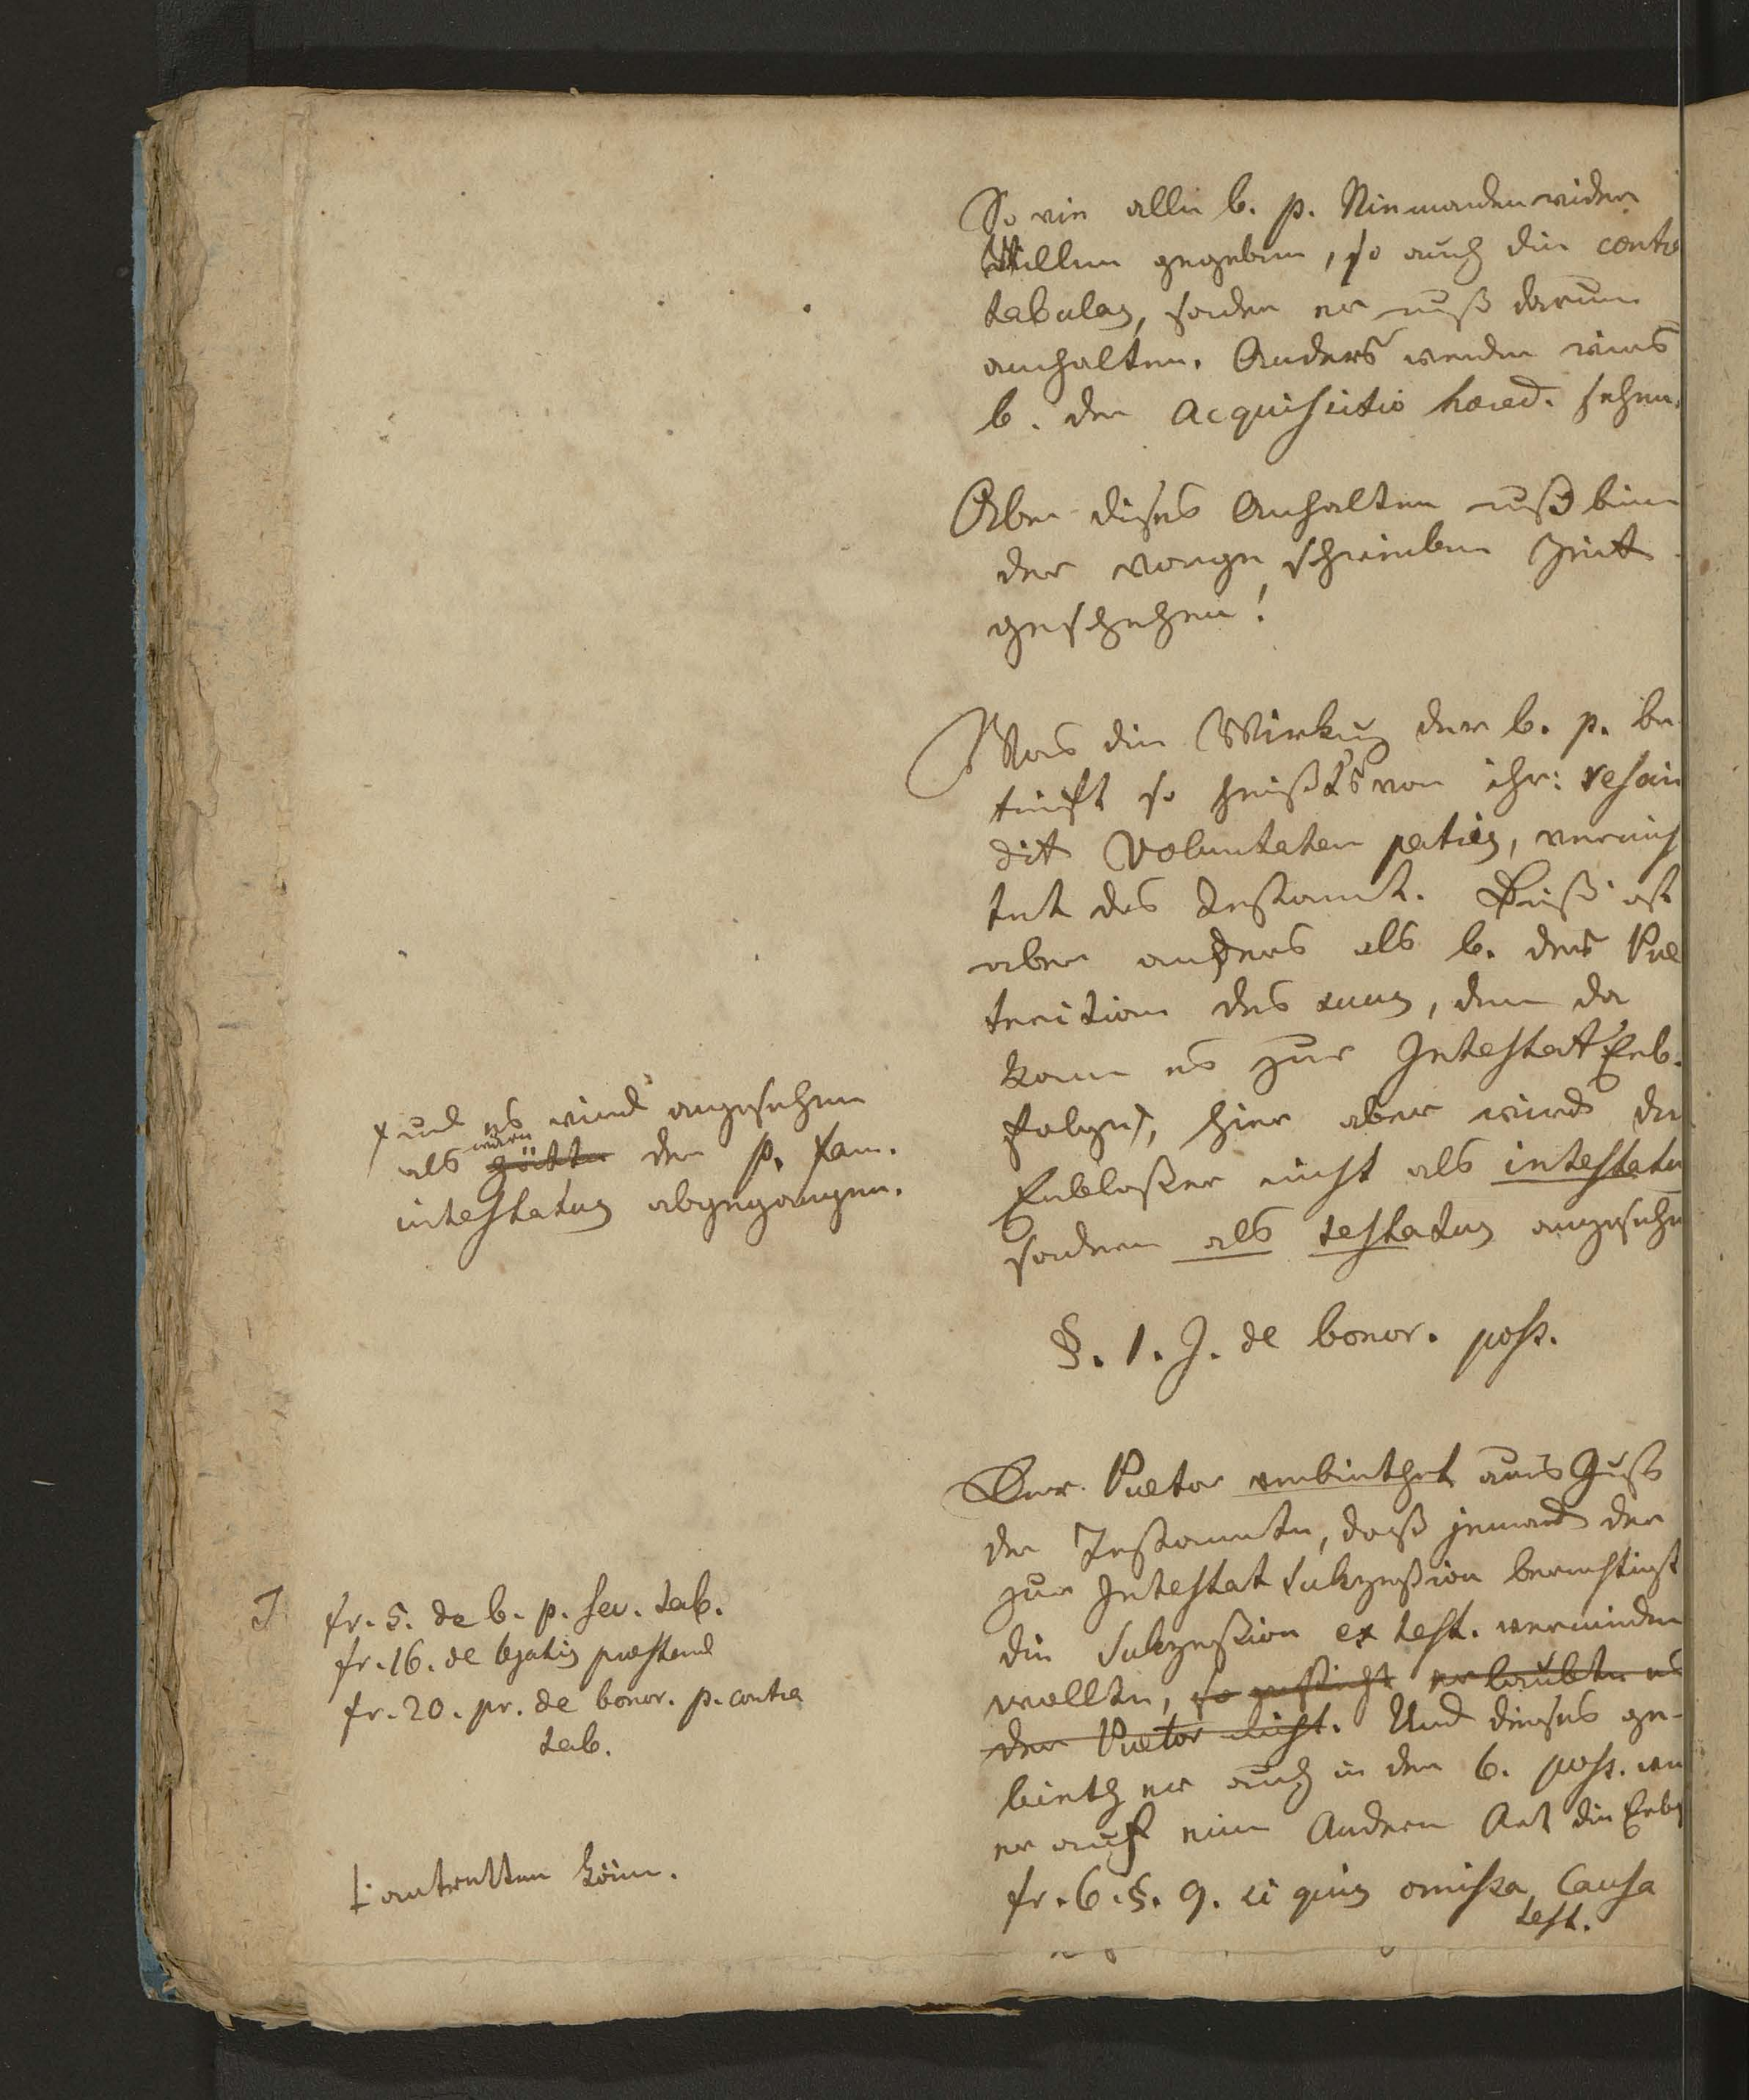 So wie alle b. p. Niemanden wider
Willen gegeben, so auch die contra
tabulas, sonder er muß darum
anhalten. Anders werden wirs
b. der acquisitio haered. sehen.
Aber dieses Anhalten muß binn
der vorge schrieben Zeit
geschehen!
Was die Wirkung der b. p. be-
trifft so heißt's von ihr: rescin
dit voluntatem patris, vernich
tet das Testamt. Dieß ist
aber anders als b. der Prae
terition des suus, denn da
kam es zur Intestat Erb-
folge†, hier aber wird der
Erblaßer nicht als intestatu
sondern als testatus angesehn
† und es wird angesehen
als wäre hätte der p. fam.
intestatus abgegangen.
§. 1. J. de bonor. poss.
Der Praetor verbiethet aus Gunst
der Testamente, daß jemand der
zur Intestat Sukzeßion berechtigt
die Sukzeßion ex test. vermeiden
wollte, so erlaubte es
der Praetor nicht. Und dieses ge-
bieth er auch in der b. poss. wen
er auf eine Andere Art die Erbs
fr. 6. §. 9. si quis omissa causa
test.
fr. 5. de b. p. sec. tab.
fr. 16. de legatis praestand
fr. 20. pr. de bonor. p. contra
tab.
antretten könne.